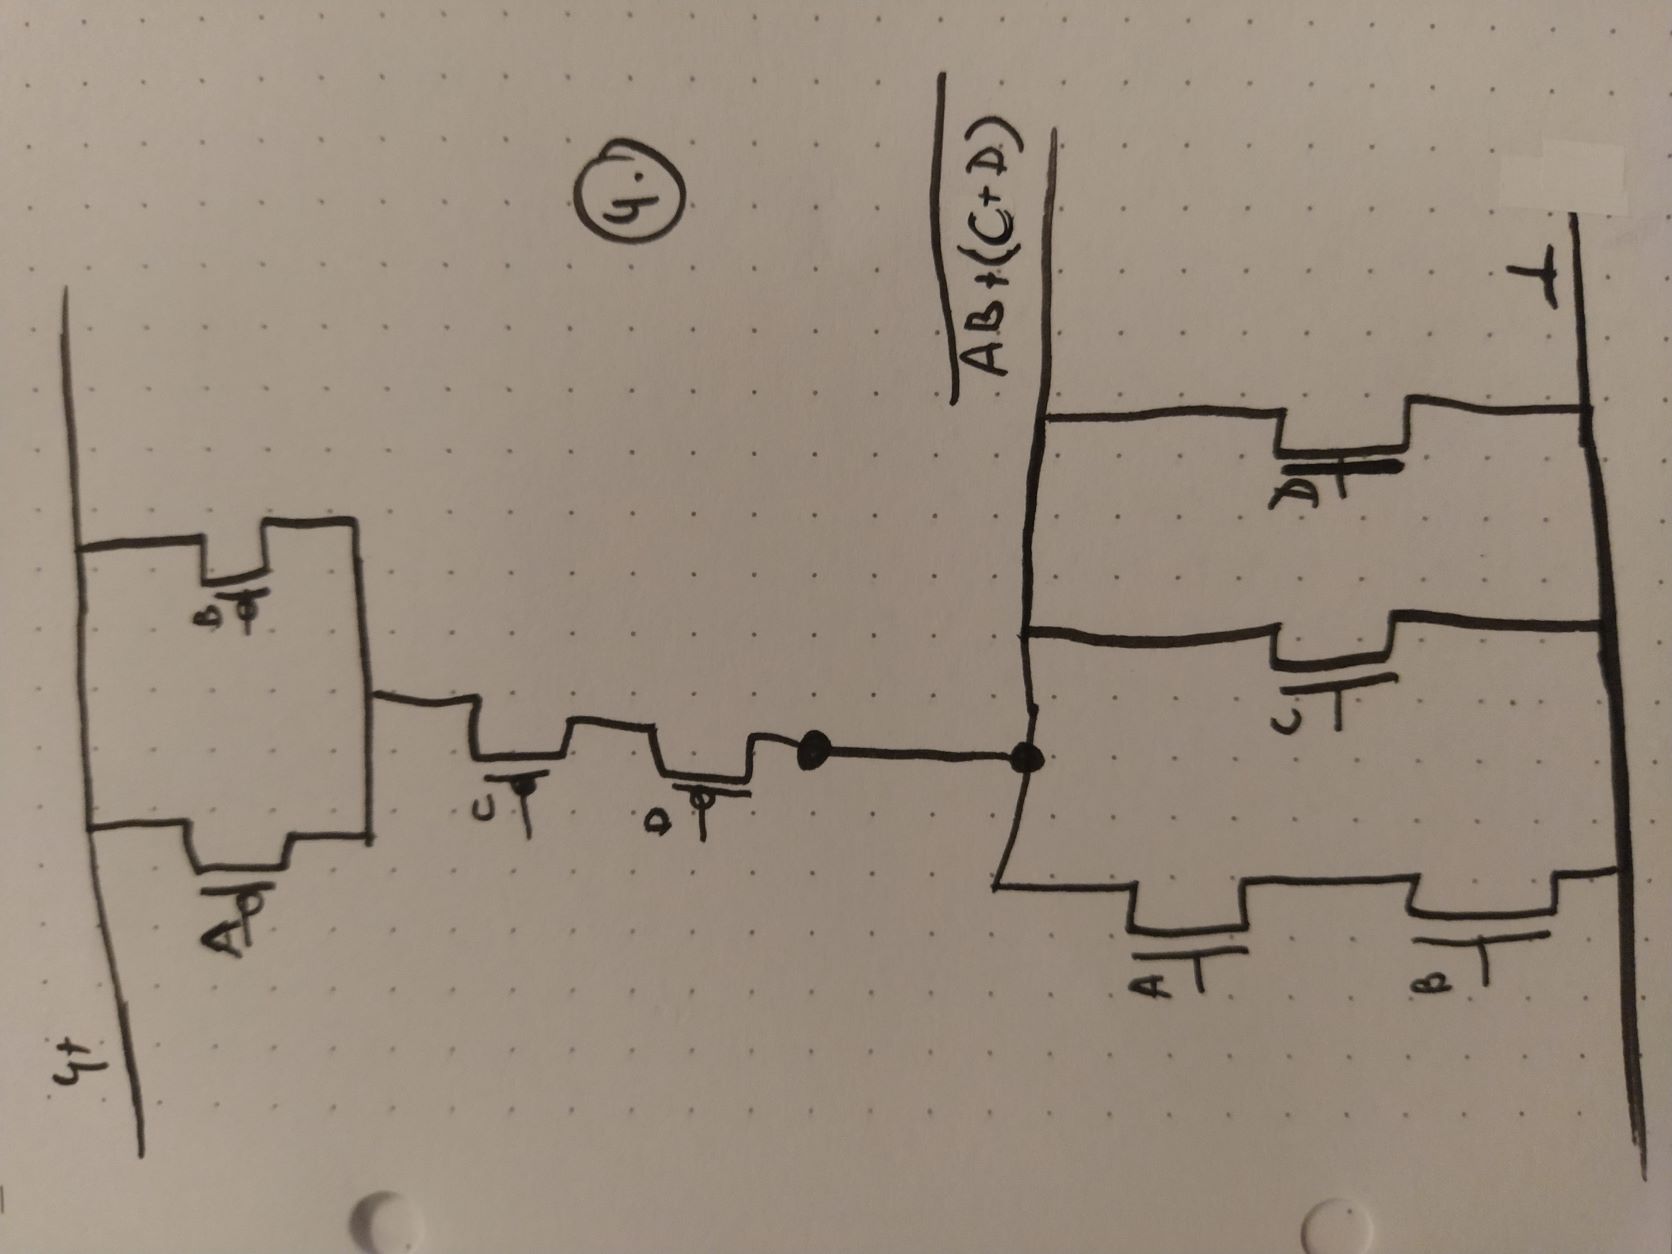 4+
A
B
C
D
4.)
AB+(C+D)
A
C
D
B
⊥